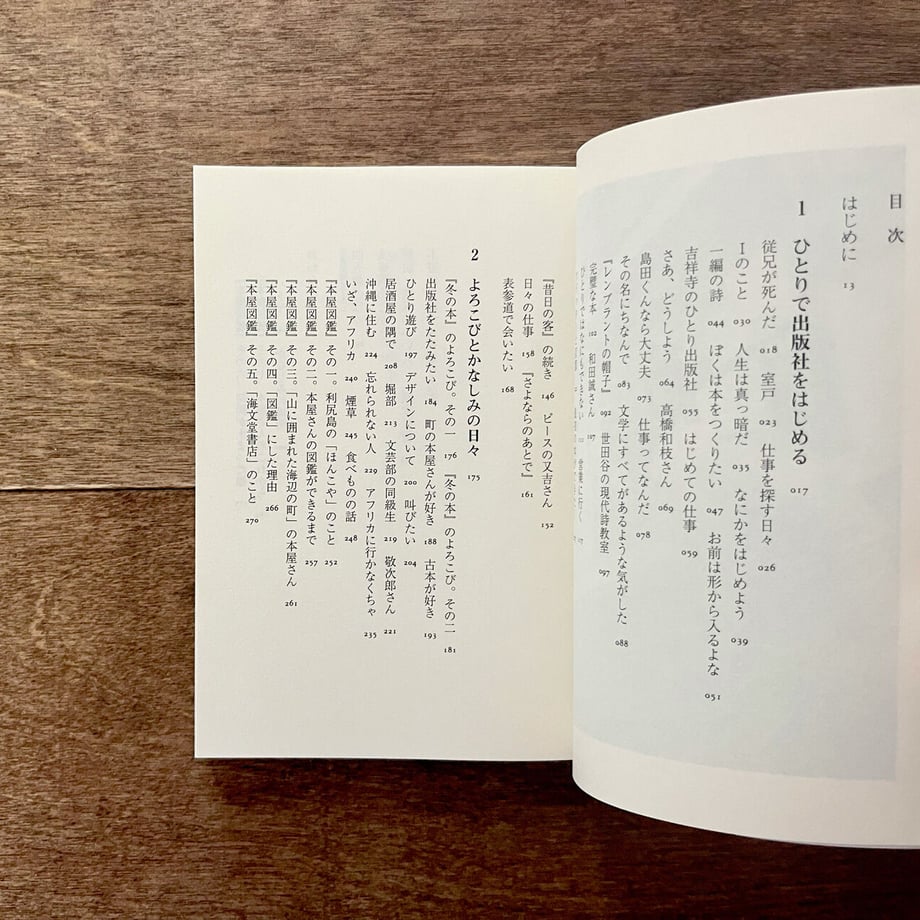 目次
はじめに 13
1 ひとりで出版社をはじめる 017
従兄が死んだ 018 室戸 023 仕事を探す日々 026
Iのこと 030 人生は真っ暗だ 035 なにかをはじめよう 039
一編の詩 044 ぼくは本をつくりたい 047 お前は形から入るよな 051
吉祥寺のひとり出版社 055 はじめての仕事 059
さあ、どうしよう 064 高橋和枝さん 069
島田くんなら大丈夫 073 仕事ってなんだ 078
その名にちなんで 083 文学にすべてがあるような気がした 088
『レンブラントの帽子』 092 世田谷の現代詩教室 097
完璧な本 102 和田誠さん 107 営業に行く
『昔日の客』の続き 146 ピースの又吉さん 152
日々の仕事 158 『さよならのあとで』 161
表参道で会いたい 168
2 よろこびとかなしみの日々 175
『冬の本』のよろこび。その一 176 『冬の本』のよろこび。その二 181
出版社をたたみたい 184 町の本屋さんが好き 188 古本が好き 193
ひとり遊び 197 デザインについて 200 叫びたい 204
居酒屋の隅で 208 堀部 213 文芸部の同級生 219 敬次郎さん 221
沖縄に住む 224 忘れられない人 229 アフリカに行かなくちゃ 235
いざ、アフリカ 240 煙草 245 食べものの話 248
『本屋図鑑』その一。利尻島の「ほんこや」のこと 252
『本屋図鑑』その二。本屋さんの図鑑ができるまで 257
『本屋図鑑』その三。「山に囲まれた海辺の町」の本屋さん 261
『本屋図鑑』その四。「図鑑」にした理由 266
『本屋図鑑』その五。「海文堂書店」のこと 270